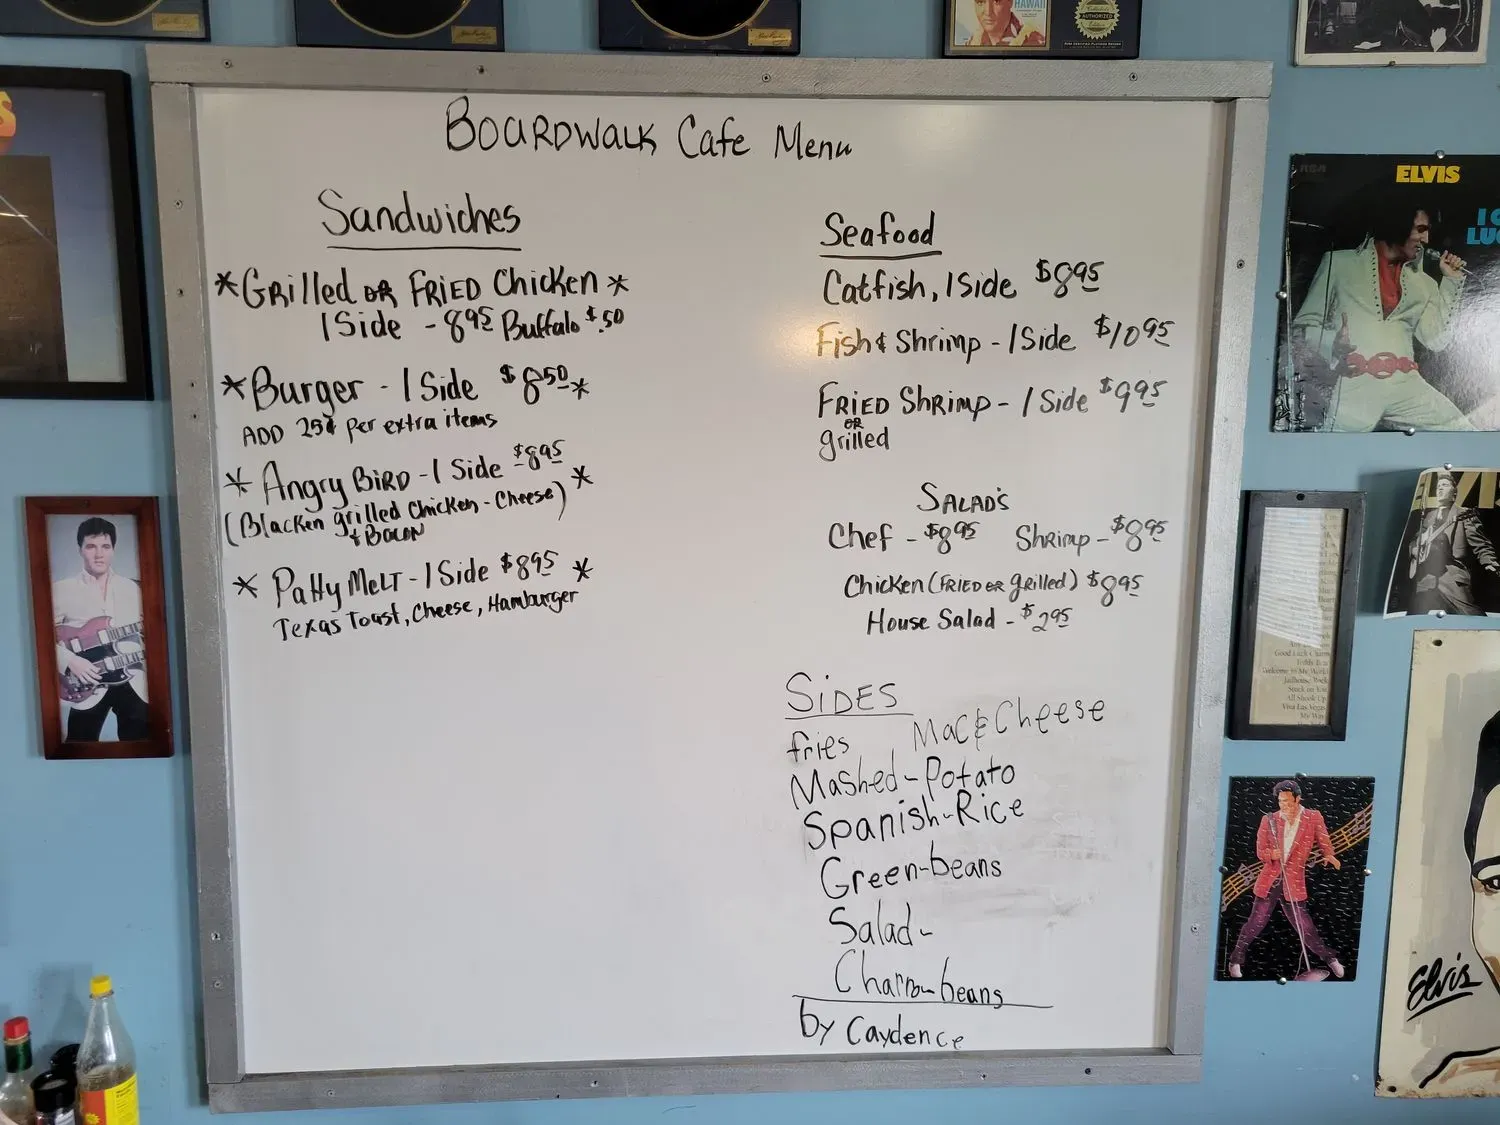 BOARDWALK Cafe Menu
Sandwiches
*Grilled OR FRIED Chicken*
1 Side - 8.95 Buffalo $.50
*Burger - 1 Side $8.50*
ADD 25¢ per extra items
* Angry BiRD - 1 Side $8.95 *
(Blacken grilled Chicken - Cheese)
+ BACON
* Patty MELT - 1 Side $8.95 *
Texas Toast, Cheese, Hamburger
Seafood
Catfish, 1 Side $8.95
Fish & Shrimp - 1 Side $10.95
FRIED Shrimp - 1 Side $9.95
OR
grilled
SALAD'S
Chef - $8.95 Shrimp - $8.95
Chicken (FRIED OR grilled) $8.95
House Salad - $2.95
SiDES
fries Mac & Cheese
Mashed-Potato
Spanish-Rice
Green-beans
Salad-
Charro-beans
by Caydence
HAWAII
AUTHORIZED
RCA
ELVIS
ELVIS
Good Luck Charm
Teddy Bear
Welcome to My World
Jailhouse Rock
Stuck on You
All Shook Up
Viva Las Vegas
My Way
Elvis